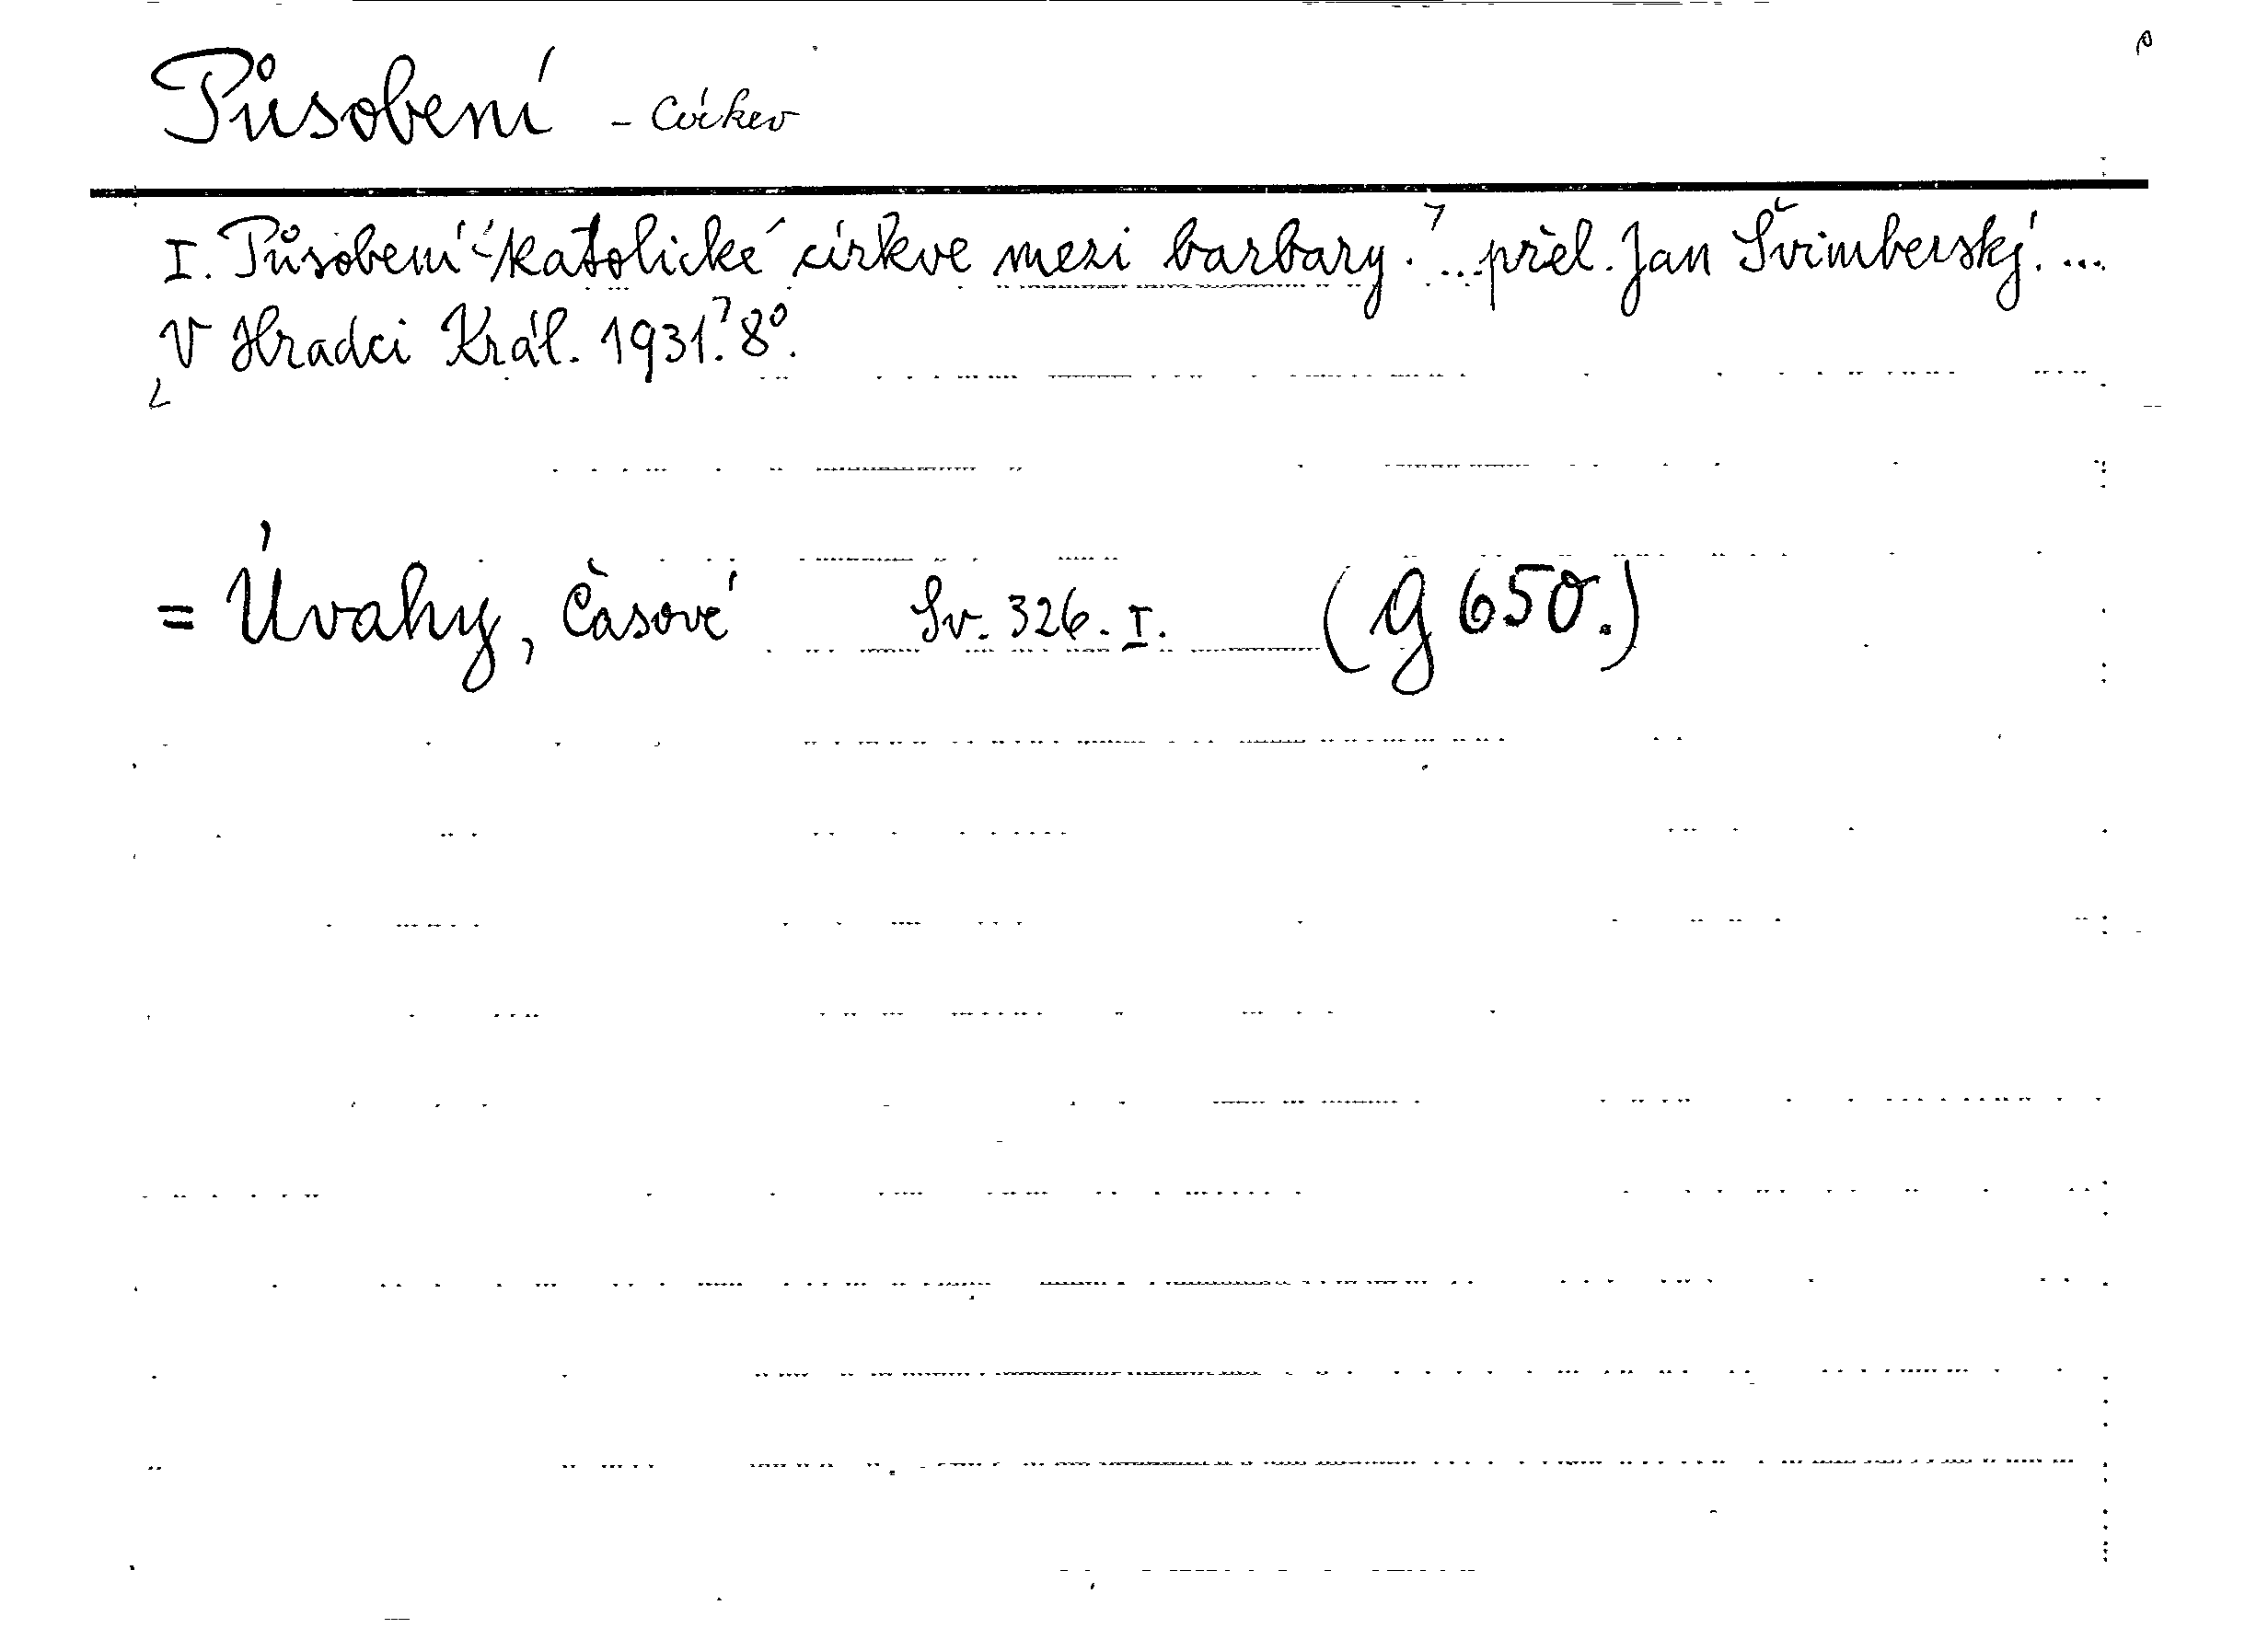 Působení - Církev
I. Působení katolické církve mezi barbary. ... přel. Jan Švimberský. ...
V Hradci Král. 1931. 8°.
= Úvahy, Časové Sv. 326. I. (g 650.)